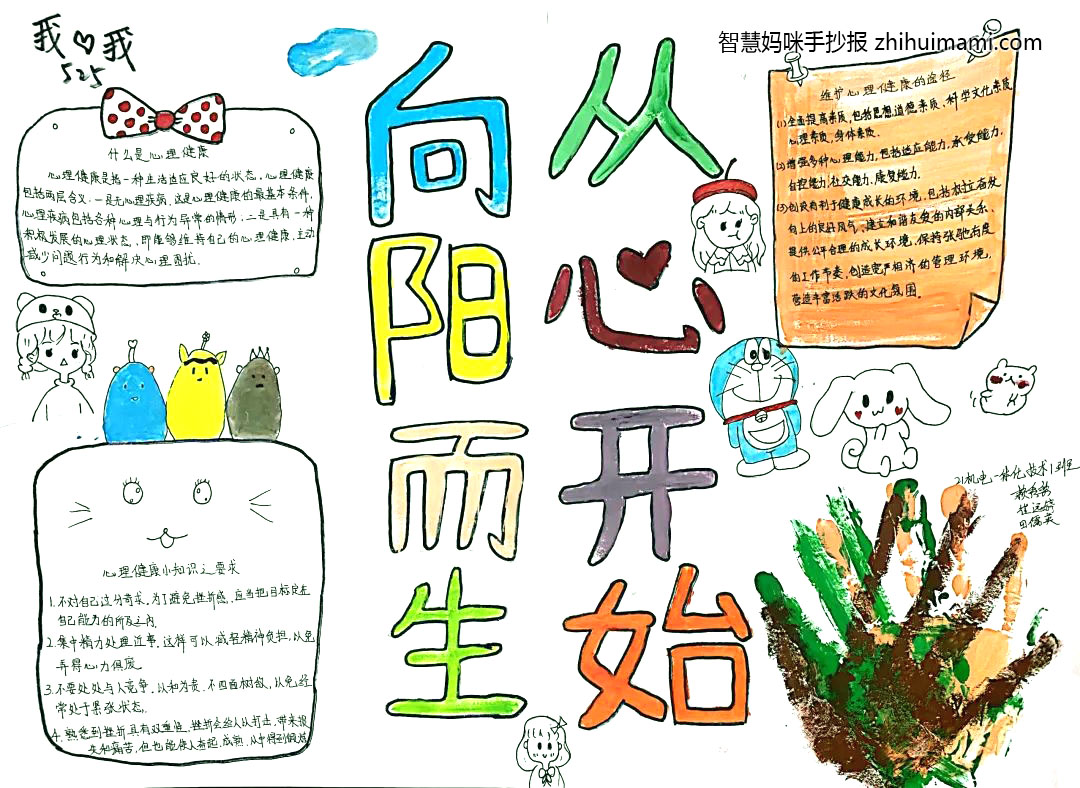 我♡我
525
智慧妈咪手抄报 zhihuimami.com
从心开始
向阳而生
什么是心理健康
心理健康是指一种生活适应良好的状态。心理健康
包括两层含义:一是无心理疾病,这是心理健康的最基本条件,
心理疾病包括各种心理与行为异常的情形。二是具有一种
积极发展的心理状态,即能够维持自己的心理健康,主动
减少问题行为和解决心理困扰.
维护心理健康的途径
(1)全面提高素质,包括思想道德素质、科学文化素质
心理素质、身体素质.
(2)增强各种心理能力,包括适应能力,承受能力,
自控能力,社交能力、康复能力.
(3)创设有利于健康成长的环境,包括树立奋发
向上的良好风气,建立和谐友爱的内部关系、
提供公平合理的成长环境,保持张弛有度
的工作节奏,创造宽严相济的管理环境,
营造丰富活跃的文化氛围。
心理健康小知识之要求
1.不对自己过分苛求,为了避免挫折感,应当把目标定在
自己能力的所及之内.
2.集中精力处理近事,这样可以减轻精神负担,以免
弄得心力俱废
3.不要处处与人竞争,以和为贵,不四面树敌,以免经
常处于紧张状态.
4.熟悉到挫折具有双重性,挫折会给人以打击,带来损
失和痛苦,但也能使人奋起,成熟,从中得到锻炼
21机电一体化技术1班